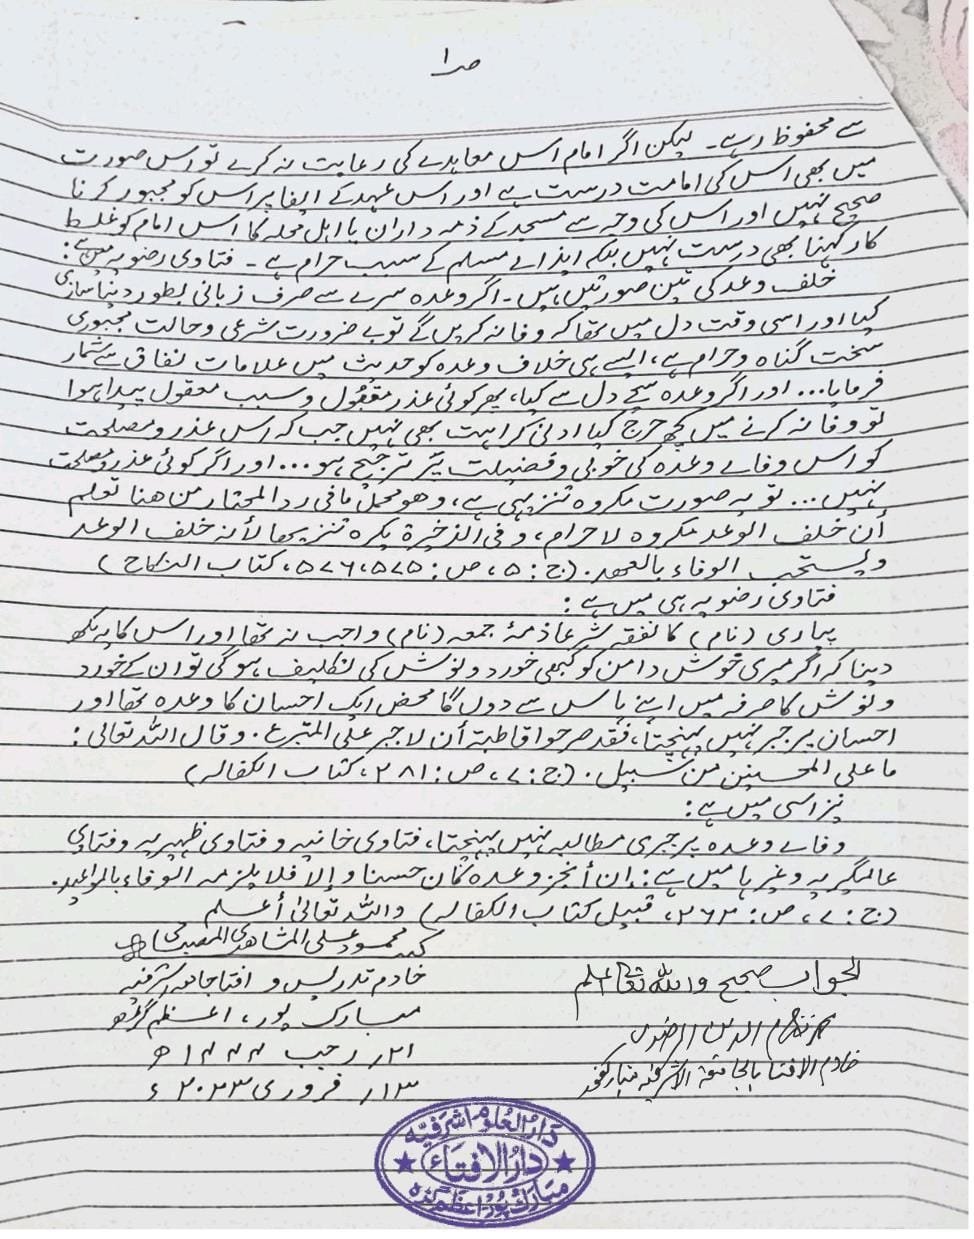 صـ ۱
سے محفوظ رہے۔ لیکن اگر امام اس معاہدے کی رعایت نہ کرے تو اس صورت
میں بھی اس کی امامت درست ہے اور اس عہد کے ایفا پر اس کو مجبور کرنا
صحیح نہیں اور اس کی وجہ سے مسجد کے ذمہ داران یا اہل محلہ کا اس امام کو غلط
کار کہنا بھی درست نہیں بلکہ ایذاے مسلم کے سبب حرام ہے۔ فتاوی رضویہ میں ہے:
خلف وعد کی تین صورتیں ہیں۔ اگر وعدہ سرے سے صرف زبانی بطور دنیا سازی
کیا اور اسی وقت دل میں تھا کہ وفا نہ کریں گے تو بے ضرورت شرعی و حالت مجبوری
سخت گناہ و حرام ہے، ایسے ہی خلاف وعدہ کو حدیث میں علامات نفاق سے شمار
فرمایا... اور اگر وعدہ سچے دل سے کیا، پھر کوئی عذر مقبول و سبب معقول پیدا ہوا
تو وفا نہ کرنے میں کچھ حرج کیا ادنیٰ کراہت بھی نہیں جب کہ اس عذر و مصلحت
کو اس وفاے وعدہ کی خوبی و فضیلت پر ترجیح ہو... اور اگر کوئی عذر و مصلحت
نہیں... تو یہ صورت مکروہ تنزیہی ہے، وھو محمل ما فی رد المحتار من ھنا تعلم
أن خلف الوعد مکروہ لا حرام، و فی الذخیرۃ یکرہ تنزیھا لأنہ خلف الوعد
و یستحب الوفاء بالعھد. (ج: ۵، ص: ۵۷۵، ۵۷۶، کتاب النکاح)
فتاوی رضویہ ہی میں ہے:
پیاری (نام) کا نفقہ شرعا ذمۂ جمعہ (نام) واجب نہ تھا اور اس کا یہ لکھ
دینا کہ اگر میری خوش دامن کو کبھی خورد و نوش کی تکلیف ہوگی تو ان کے خورد
و نوش کا صرفہ میں اپنے پاس سے دوں گا محض ایک احسان کا وعدہ تھا اور
احسان پر جبر نہیں پہنچتا، فقد صرحوا قاطبۃ أن لا جبر علی المتبرع. و قال اللہ تعالی:
ما علی المحسنین من سبیل. (ج: ۷، ص: ۲۸۱، کتاب الکفالہ)
نیز اسی میں ہے:
وفاے وعدہ پر جبری مطالبہ نہیں پہنچتا، فتاوی خانیہ و فتاوی ظہیریہ و فتاوی
عالمگیریہ وغیرہا میں ہے: إن أنجز وعدہ کان حسنا و إلا فلا یلزمہ الوفاء بالمواعید.
(ج: ۷، ص: ۲۶۲، قبیل کتاب الکفالہ) واللہ تعالیٰ أعلم
کتبہ محمود علی المشاهدی المصباحی
خادم تدریس و افتا جامعہ اشرفیہ
مبارک پور، اعظم گڑھ
۲۱/ رجب ۱۴۴۴ھ
۱۳/ فروری ۲۰۲۳ء
الجواب صحیح واللہ تعالیٰ اعلم
محمد نظام الدین الرضوی
خادم الافتا بالجامعۃ الاشرفیہ مبارکفور
دارالعلوم اشرفیہ
دارالافتاء
مبارک پور اعظم گڑھ